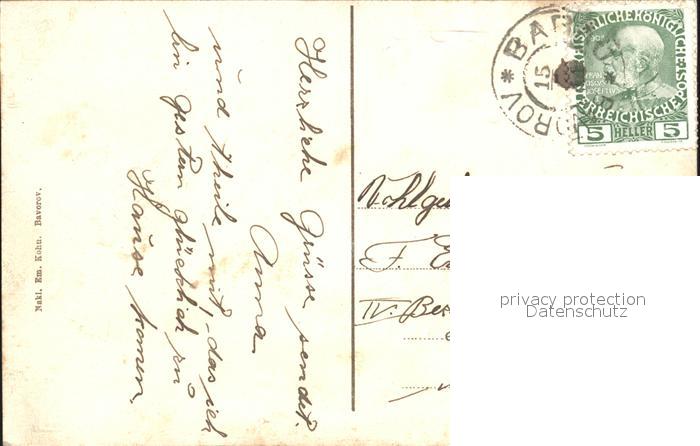 Herzliche Grüsse sendet.
Anna.
und theile mit, das ich
bin gestern glücklich zu
Hause komen.
Nakl. Em. Kohn. Bavorov.
BAR
BAVOROV
15
KAISERLICHE KÖNIGLICHE
ÖSTERREICHISCHE POST
5 HELLER 5
F.
IV.
privacy protection
Datenschutz